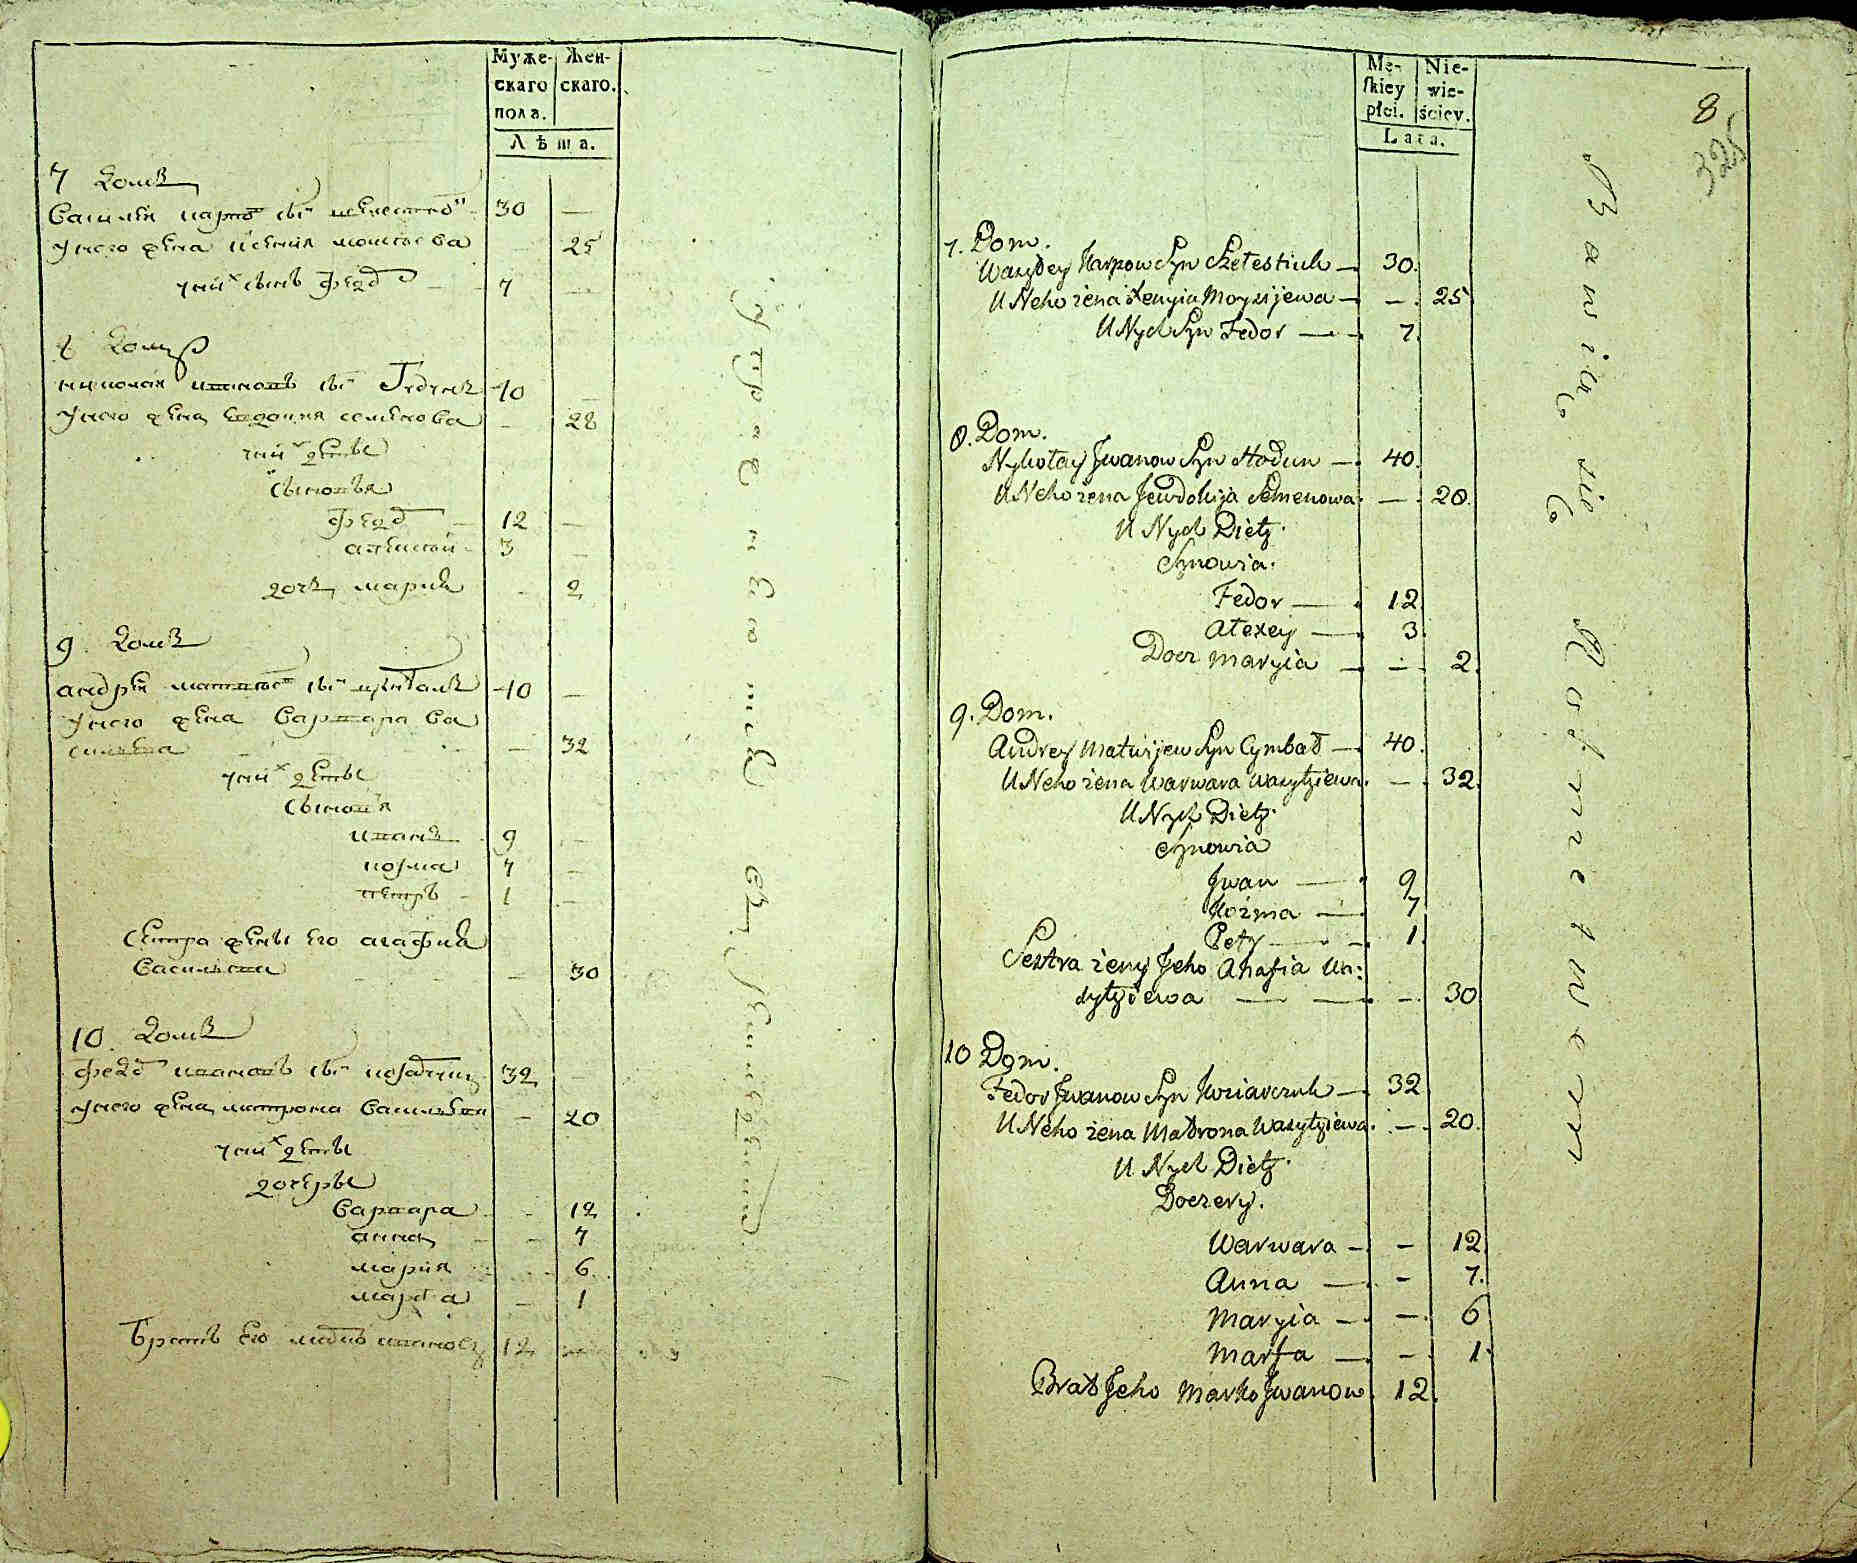 Муже-
скаго
пола.
Жен-
скаго.
Лѣта.
7 домъ
Василей карповъ сынъ
у него жена ксения моисеева
30
25
у них сынъ Федоръ
7
8 домъ
николай ивановъ сынъ Годунъ
40
у него жена евдокия семенова
28
у них дети
сыновья
Федоръ 12
алексей 3
дочь мария 2
9. домъ
андрей матвеевъ сынъ цымбалъ
40
у него жена варвара ва
сильева
32
у них дети
сыновья
иванъ 9
козма 7
петръ 1
сестра жены его агафия
васильева
30
10. домъ
Федоръ ивановъ сынъ
32
у него жена матрона васильева
20
у них дети
дочеры
варвара 12
анна 7
мария 6
марфа 1
братъ его ивановъ 12
Mę-
skiey
płci.
Nie-
wie-
ściey.
Lata.
8
325
7. Dom.
Wasyley Karpow Syn Szelestiuk — 30.
U Neho żena Xenyia Moyzijewa — — 25
U Nych Syn Fedor — 7.
8. Dom.
Nykołay Jwanow Syn Hodun — 40.
U Neho żena Jewdokija Semenowa. — 28.
U Nych Diety.
Synowia.
Fedor — 12
Alexey — 3
Docz Maryia — — 2.
9. Dom.
Andrey Matwijew Syn Cymbał — 40.
U Neho żena Warwara Wasylyiewa. — 32.
U Nych Diety.
Synowia
Jwan — 9
Kozma — 7
Petr — 1
Sestra żeny Jeho Ahafia Wa:
sylyiewa — — — 30
10 Dom.
Fedor Jwanow Syn Koziarczuk — 32
U Neho żena Matrona Wasylyiewa. — 20.
U Nych Diety.
Doczery.
Warwara — — 12.
Anna — — 7.
Maryia — — 6
Marfa — — 1.
Brat Jeho Marko Jwanow. 12.
Bawią się Rolnictwem